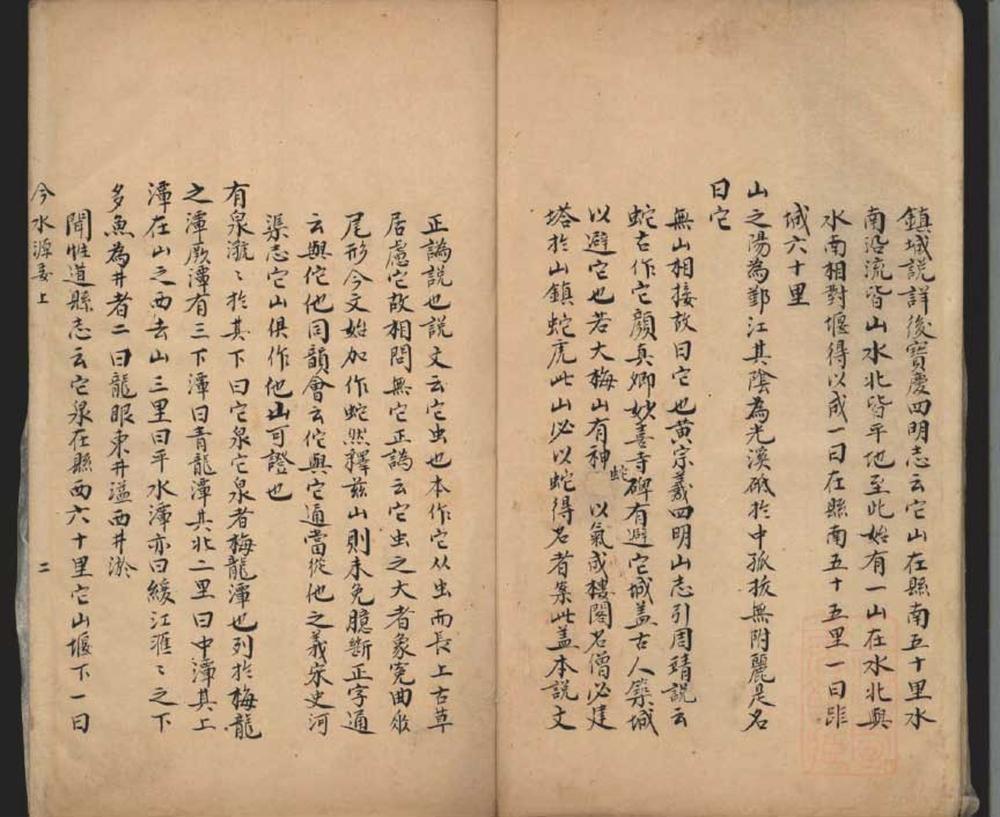 鎮城説詳後寳慶四明志云它山在縣南五十里水
南沿流皆山水北皆平地至此始有一山在水北與
水南相對堰得以成一曰在縣南五十五里一曰距
城六十里
山之陽為鄞江其陰為光溪砥於中孤拔無附麗是名
曰它
無山相接故曰它也黄宗羲四明山志引周靖説云
蛇古作它顔真卿妙喜寺碑有避它城盖古人築城
以避它也若大梅山有神蛇以氣成樓閣名僧必建
塔於山鎮蛇虎此山必以蛇得名者案此盖本説文
正譌説也説文云它虫也本作它从虫而長上古草
居慮它故相問無它正譌云它虫之大者象寃曲㐲
尾形今文始加作蛇然釋兹山則未免臆斷正字通
云與佗他同韻會云佗與它通當從他之義宋史河
渠志它山俱作他山可證也
有泉㴸㴸於其下曰它泉它泉者梅龍潭也列於梅龍
之潭厥潭有三下潭曰青龍潭其北二里曰中潭其上
潭在山之西去山三里曰平水潭亦曰緩江滙滙之下
多魚為井者二曰龍眼東井溢西井淤
聞性道縣志云它泉在縣西六十里它山堰下一曰
今水源委上 二